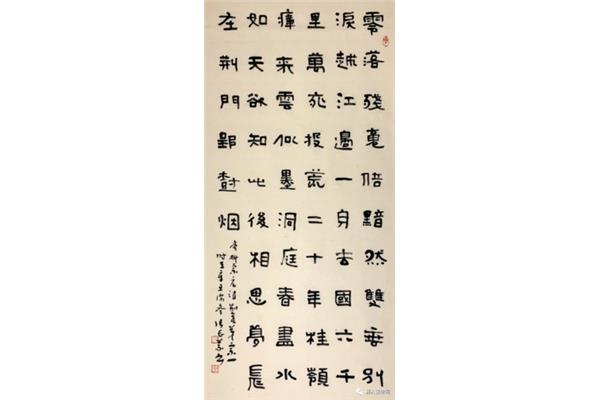 零落殘魂倍黯然雙垂別
淚越江邊一身去國六千
里萬死投荒二十年桂嶺
瘴來雲似墨洞庭春盡水
如天欲知此後相思夢長
在荊門郢樹烟